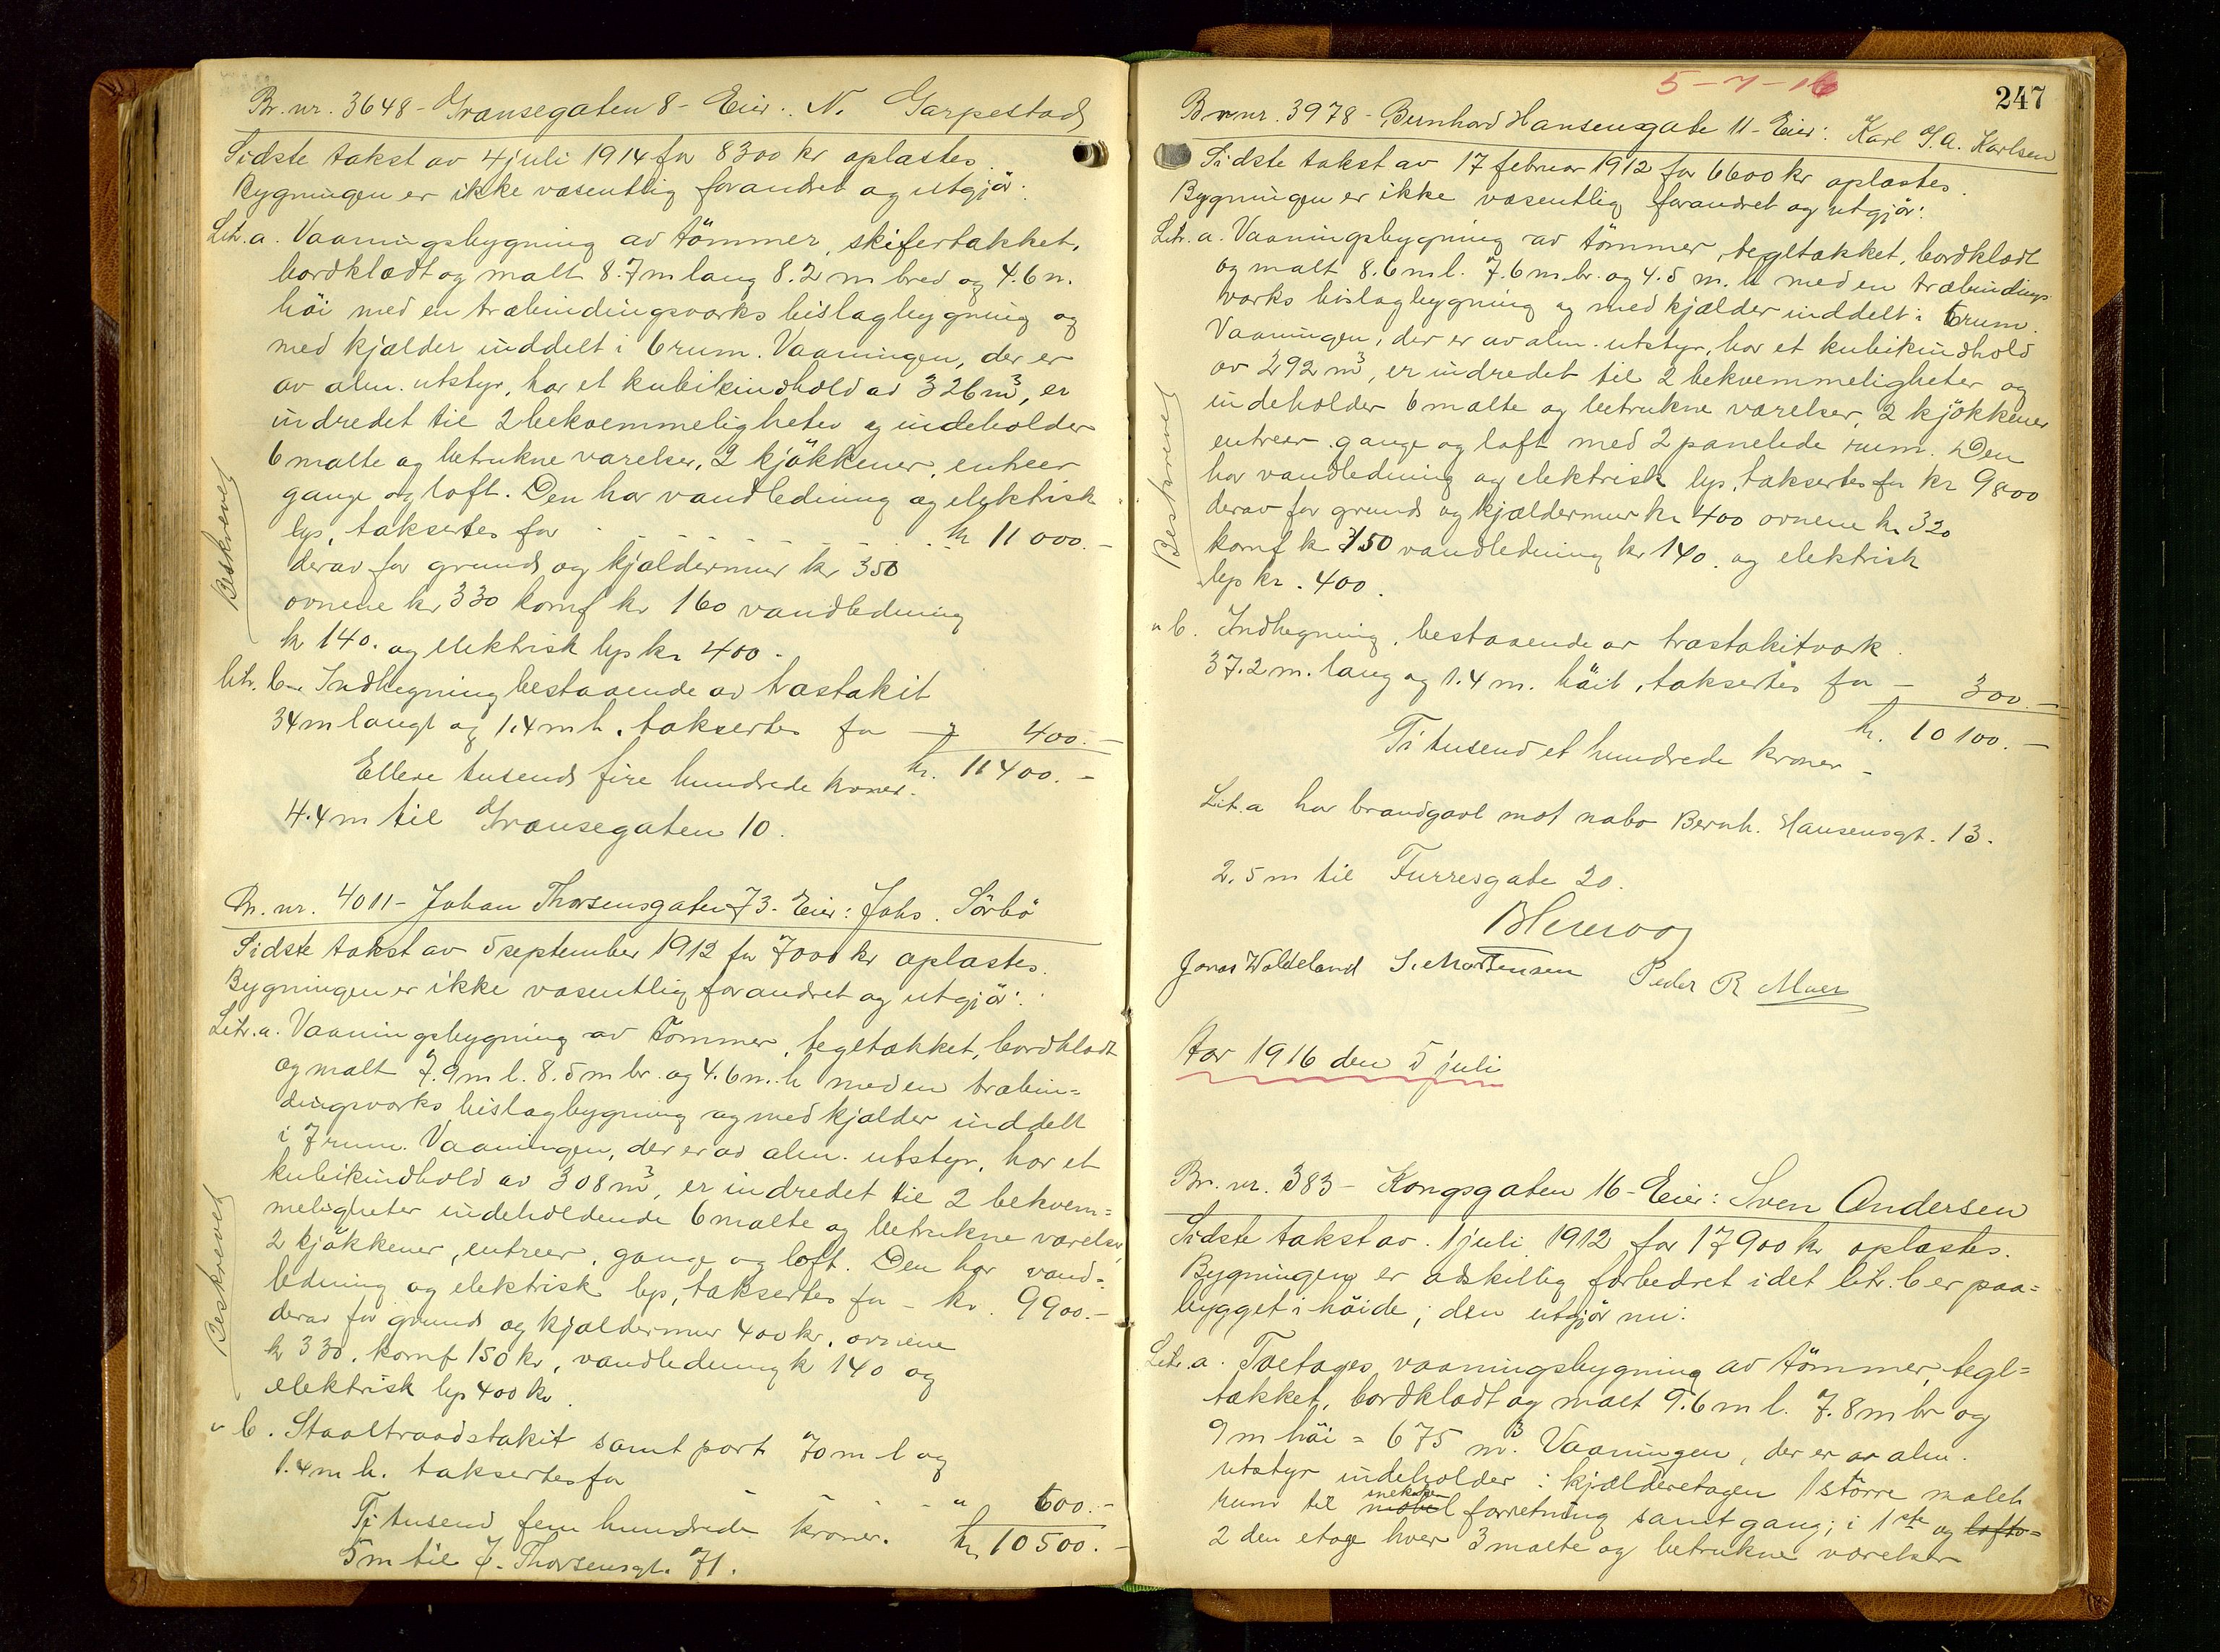 Br. nr. 3648 - Gransegaten 8 - Eier: N. Garpestad
Sidste takst av 4 juli 1914 for 8300 kr oplæstes.
Bygningen er ikke væsentlig forandret og utgjør:
Litr. a. Vaaningsbygning av tömmer, skifertækket,
bordklædt og malt 8.7 m lang 8.2 m bred og 4.6 m.
höi med en træbindingsværks bislagbygning og
med kjælder inddelt i 6 rum. Vaaningen, der er
av alm. utstyr, har et kubikindhold av 326 m³, er
indredet til 2 bekvemmeligheter og indeholder
6 malte og betrukne værelser, 2 kjökkener, entreer
gange og loft. Den har vandledning og elektrisk
lys, taksertes for - - - - - - - kr 11 000.-
derav for grund og kjældermur kr 350
ovnene kr 330 komf kr 160 vandledning
kr 140. og elektrisk lys kr 400.
Beskrevet
Litr. b. Indhegning bestaaende av træstakit
34 m langt og 1.4 m h. taksertes for - " 400.-
kr. 11400.-
Elleve tusend fire hundrede kroner.
4.4 m til Gransegaten 10.
Br. nr. 4011 - Johan Thorsensgaten 73 - Eier: Johs. Sörbö
Sidste takst av 5 september 1912 for 7000 kr oplæstes.
Bygningen er ikke væsentlig forandret og utgjör:
Litr. a. Vaaningsbygning av tömmer, tegltækket, bordklædt
og malt 7.9 m l. 8.5 m br. og 4.6 m. h med en træbin=
dingsværks bislagbygning og med kjælder inddelt
i 7 rum. Vaaningen, der er av alm. utstyr, har et
kubikindhold av 308 m³, er indredet til 2 bekvem=
meligheter indeholdende 6 malte og betrukne værelser,
2 kjökkener, entreer, gange og loft. Den har vand=
ledning og elektrisk lys, taksertes for - kr. 9900.-
derav for grund og kjældermur 400 kr. ovnene
kr 330. komf 150 kr, vandledning kr 140 og
elektrisk lys 400 kr.
Beskrevet
" b. Staaltraadstakit samt port 70 m l og
1.4 m h. taksertes for - - - - " 600.-
kr. 10500.-
Ti tusend fem hundrede kroner.
5 m til J. Thorsensgt. 71.
5-7-16
247
Br. nr. 3978 - Bernhard Hansensgate 11 - Eier: Karl G. A. Karlsen
Sidste takst av 17 februar 1912 for 6600 kr oplæstes.
Bygningen er ikke væsentlig forandret og utgjör:
Litr. a. Vaaningsbygning av tömmer, tegltækket, bordklædt
og malt 8.6 m l. 7.6 m. br. og 4.5 m. h med en træbindings
værks bislagbygning og med kjælder inddelt i 6 rum.
Vaaningen, der er av alm. utstyr, har et kubikindhold
av 292 m³, er indredet til 2 bekvemmeligheter og
indeholder 6 malte og betrukne værelser, 2 kjökkener
entreer, gange og loft med 2 panelede rum. Den
har vandledning og elektrisk lys, taksertes for kr 9800
derav for grund og kjældermur kr 400 ovnene kr 320
komf kr 150 vandledning kr 140. og elektrisk
lys kr. 400.
Beskrevet
" b. Indhegning, bestaaende av træstakitværk
37.2 m. lang og 1.4 m. höit, taksertes for - 300.-
kr. 10 100.-
Ti tusend et hundrede kroner -
Lit. a har brandgavl mot nabo Bernh. Hansensgt. 13.
2,5 m til Furresgate 20.
Jonas Waldeland S. Mortensen Peder R. Moer
Aar 1916 den 5 juli
Br. nr. 383 - Kongsgaten 16 - Eier: Sven Andersen
Sidste takst av 1 juli 1912 for 17900 kr oplæstes.
Bygningen er adskillig forbedret idet litr. b er paa=
bygget i höide; den utgjör nu:
Litr. a. Toetages vaaningsbygning av tömmer, tegl=
tækket, bordklædt og malt 9.6 m l. 7.8 m br og
9 m höi = 675 m³. Vaaningen, der er av alm.
utstyr indeholder: i kjælderetagen 1 större malet
rum til möbel snekker forretning samt gang; i 1ste og lofts=
2 den etage hver 3 malte og betrukne værelser